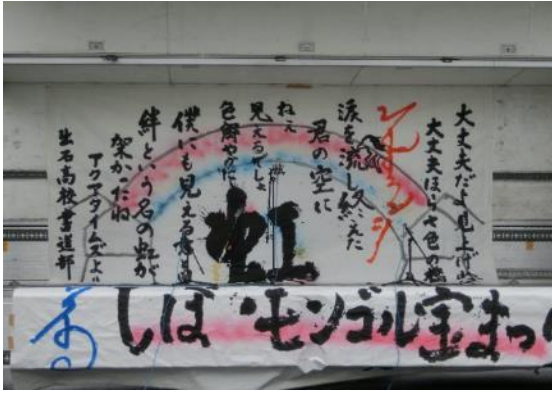 大丈夫だよ見上げれば
大丈夫ほら七色の橋
涙を流し終えた
君の空に
ねぇ
見えるでしょ
色鮮やかに
僕にも見える
絆という名の虹が
架かったね
アクアタイムズより
出石高校書道部
虹
モンゴル宝まつ